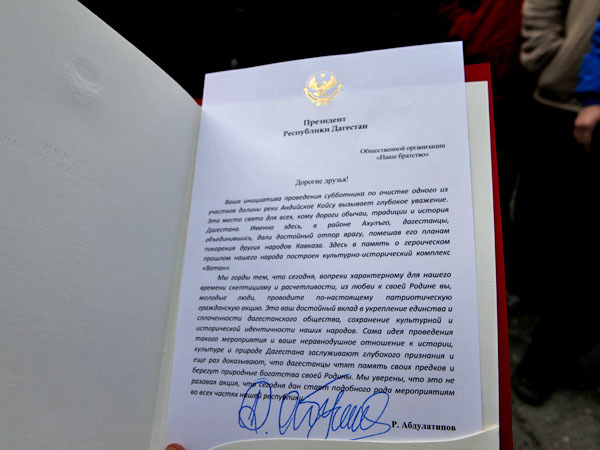 Президент
Республики Дагестан
Общественной организации
«Наше братство»
Дорогие друзья!
Ваша инициатива проведения субботника по очистке одного из
участков долины реки Андийское Койсу вызывает глубокое уважение.
Это место свято для всех, кому дороги обычаи, традиции и история
Дагестана. Именно здесь, в районе Ахульго, дагестанцы,
объединившись, дали достойный отпор врагу, помешав его планам
покорения других народов Кавказа. Здесь в память о героическом
прошлом нашего народа построен культурно-исторический комплекс
«Ватан».
Мы горды тем, что сегодня, вопреки характерному для нашего
времени скептицизму и расчетливости, из любви к своей Родине вы,
молодые люди, проводите по-настоящему патриотическую
гражданскую акцию. Это ваш достойный вклад в укрепление единства и
сплоченности дагестанского общества, сохранение культурной и
исторической идентичности наших народов. Сама идея проведения
такого мероприятия и ваше неравнодушное отношение к истории,
культуре и природе Дагестана заслуживают глубокого признания и
еще раз доказывают, что дагестанцы чтят память своих предков и
берегут природные богатства своей Родины. Мы уверены, что это не
разовая акция, что сегодня дан старт подобного рода мероприятиям
во всех частях нашей республики.
Р. Абдулатипов